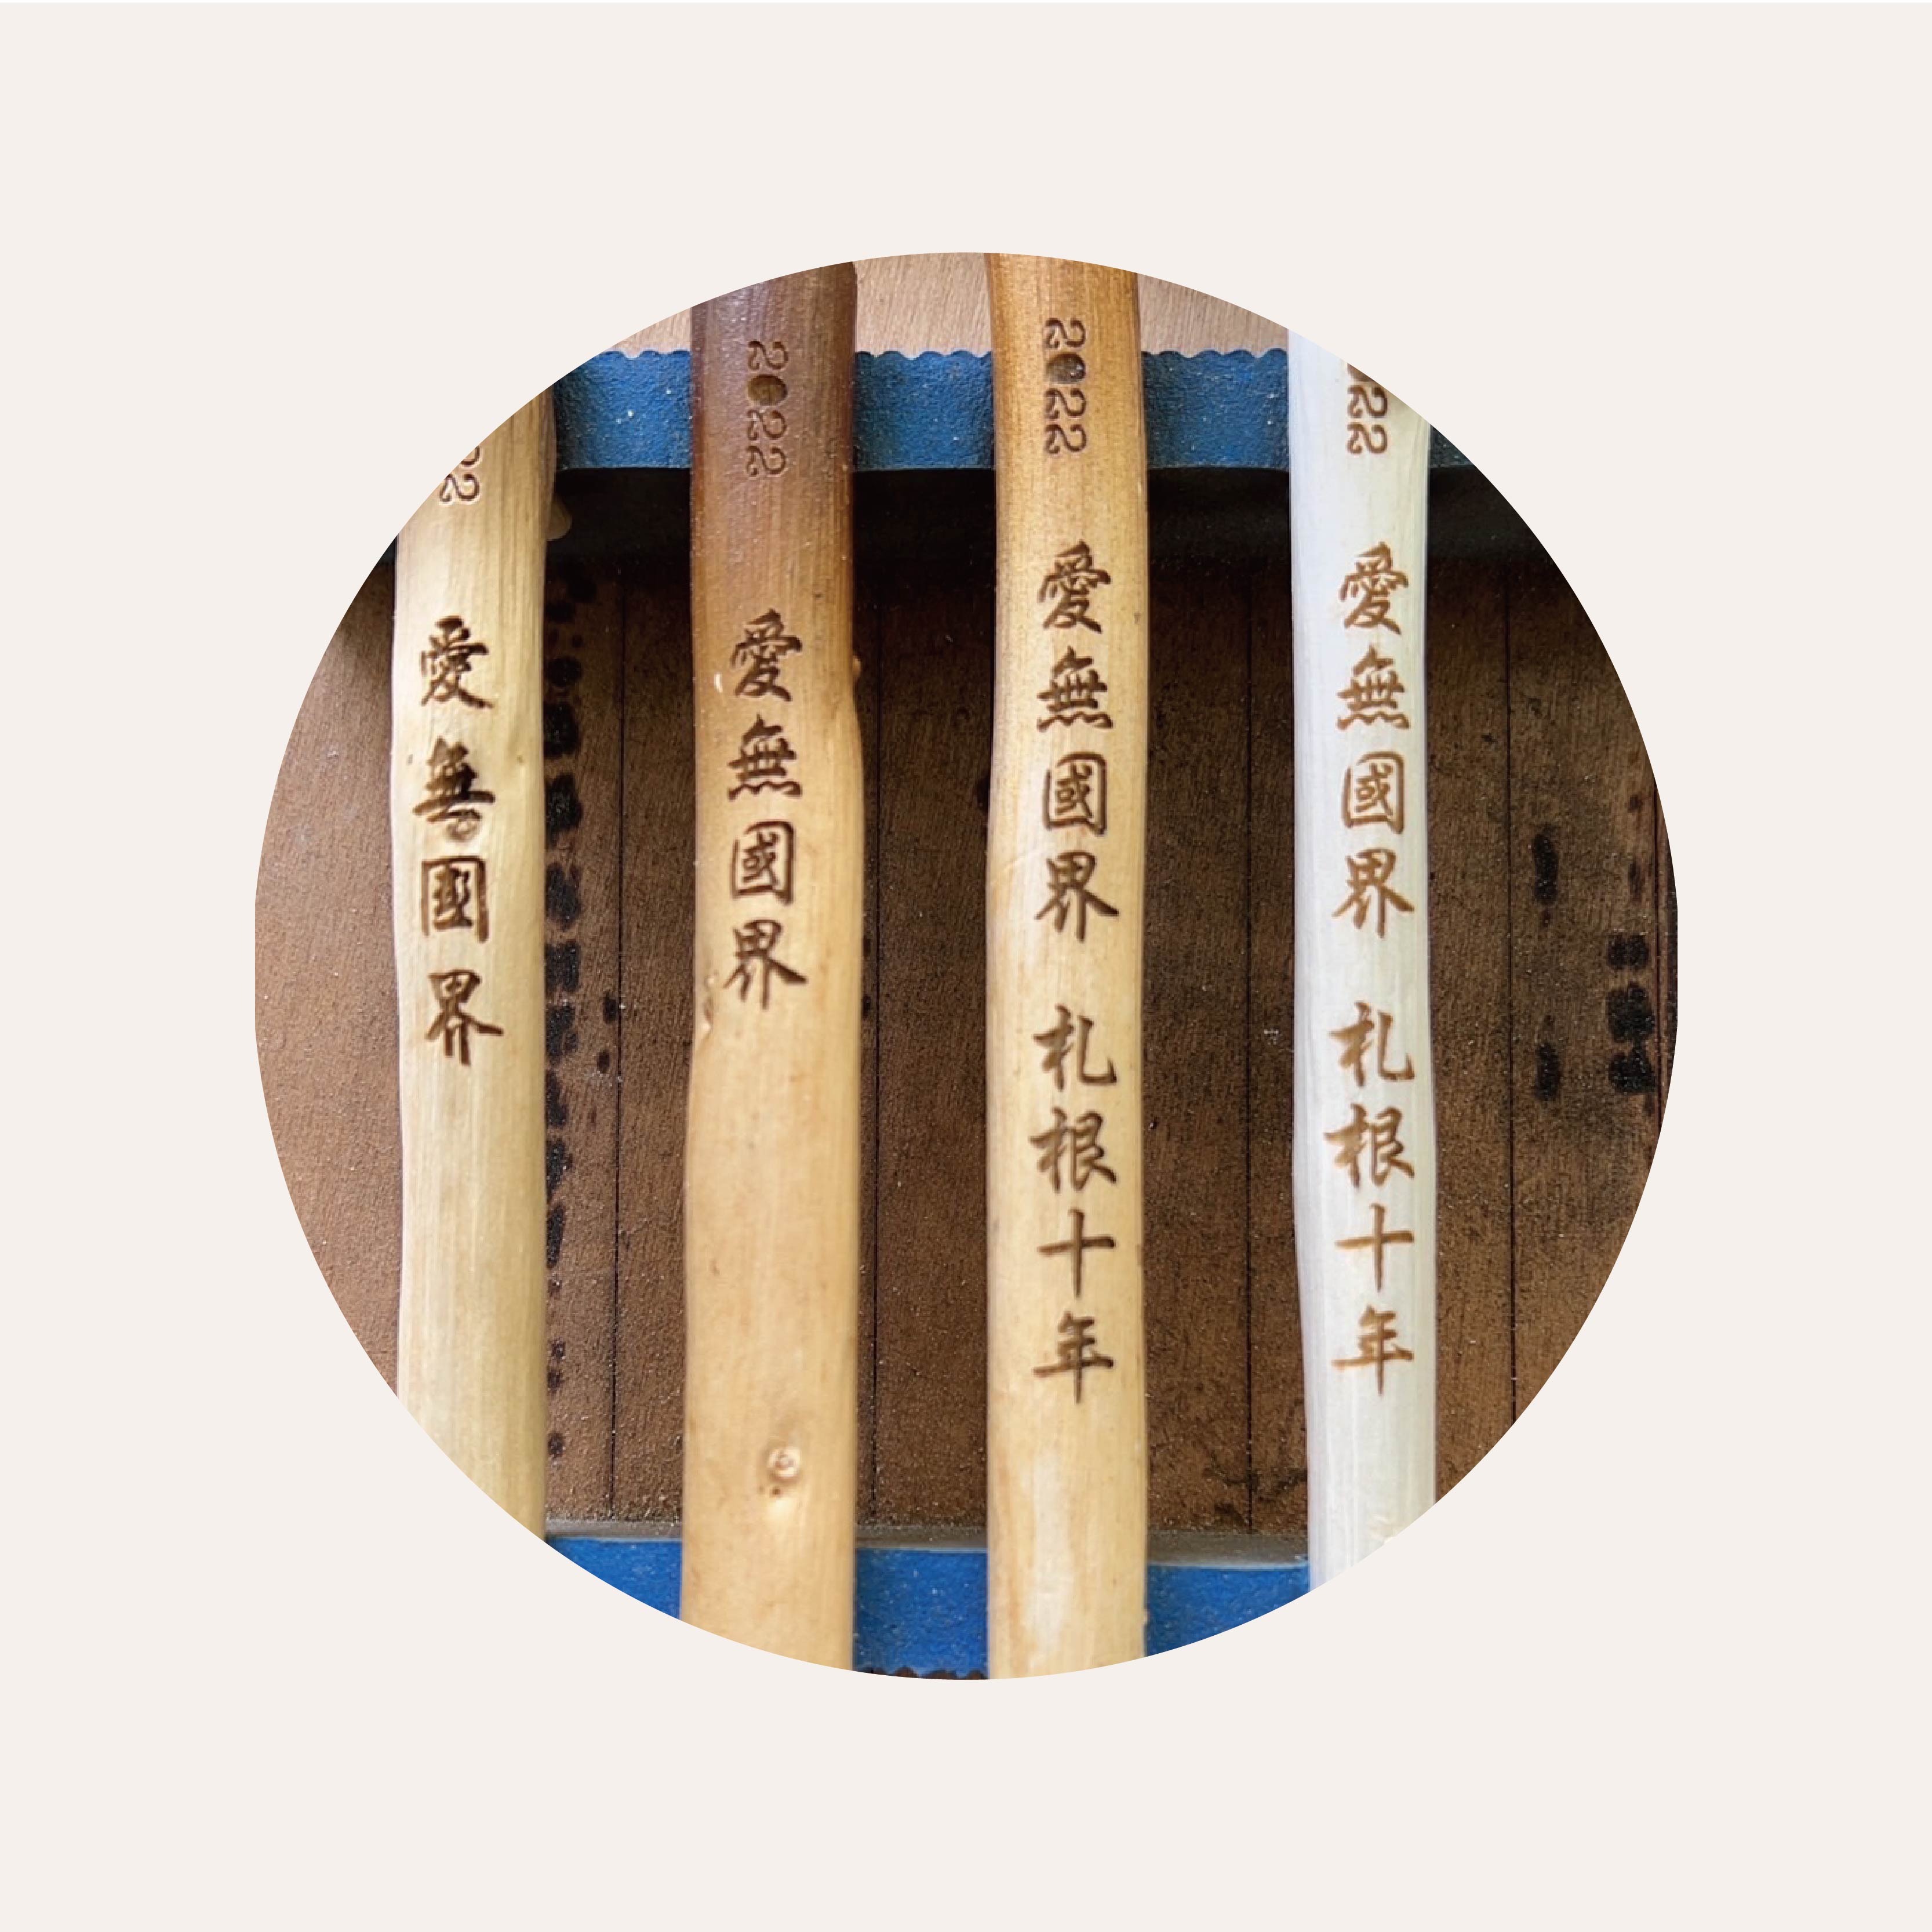 22
愛無國界
2022
愛無國界
2022
愛無國界 札根十年
022
愛無國界 札根十年